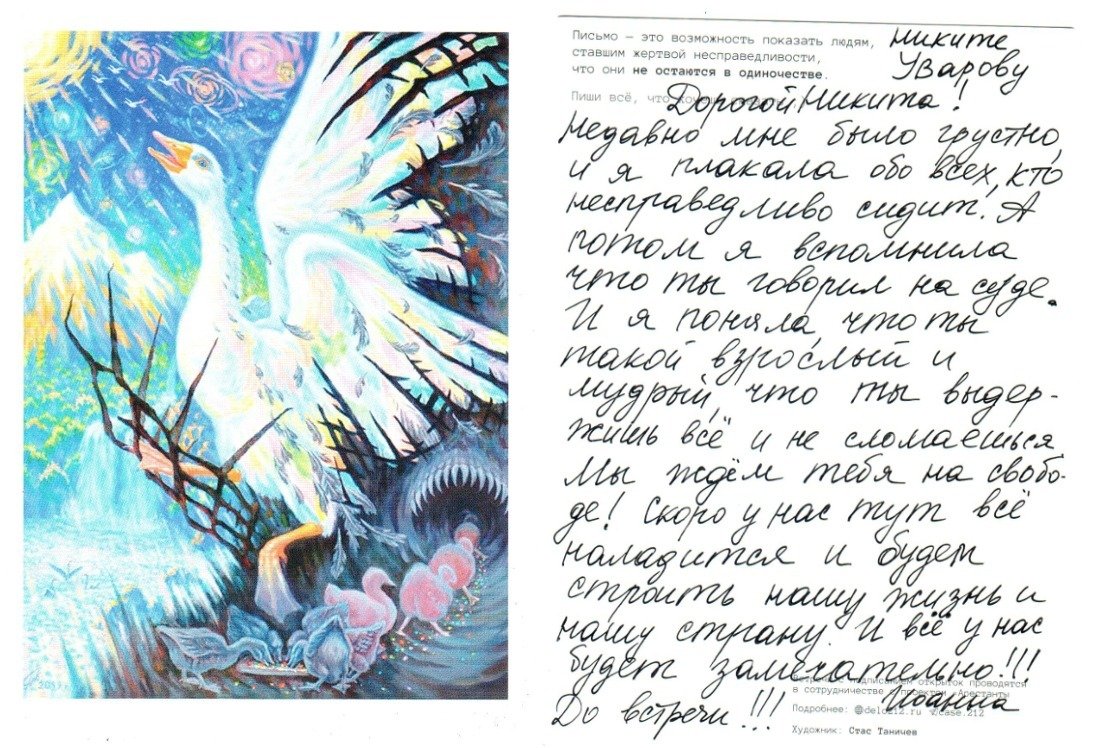 Письмо — это возможность показать людям,
ставшим жертвой несправедливости,
что они не остаются в одиночестве.
Пиши всё, что
Никите
Уварову
Дорогой Никита!
Недавно мне было грустно,
и я плакала обо всех, кто
несправедливо сидит. А
потом я вспомнила
что ты говорил на суде.
И я поняла что ты
такой взрослый и
мудрый, что ты выдер-
жишь всё и не сломаешься
Мы ждём тебя на свобо-
де! Скоро у нас тут всё
наладится и будем
строить нашу жизнь и
нашу страну. И всё у нас
будет замечательно!!!
До встречи!!! Иоанна
подписанием открыток проводятся
в сотрудничестве с проектом «Арестанты
Подробнее: @delo212.ru case.212
Художник: Стас Таничев